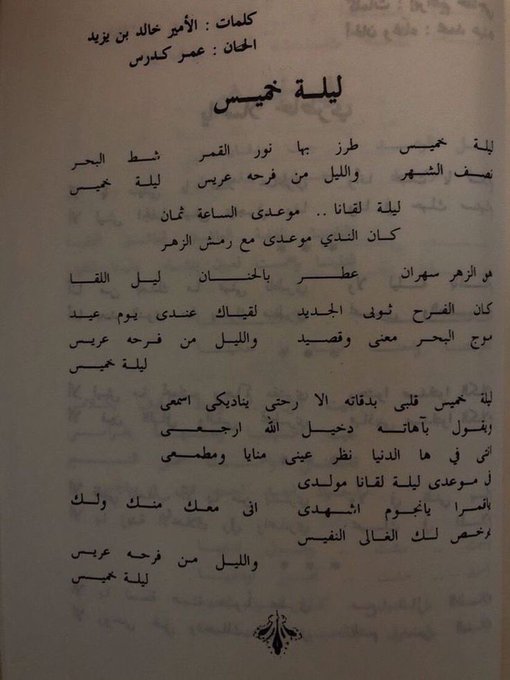 كلمات : الأمير خالد بن يزيد
الحان : عمر كدرس
ليلة خميس
ليلة خميس طرز بها نور القمر شط البحر
نصف الشهر والليل من فرحه عريس ليلة خميس
ليلة لقانا .. موعدى الساعة ثمان
كان الندي موعدى مع رمش الزهر
هو الزهر سهران عطر بالحنان ليل اللقا
كان الفرح ثوبى الجديد لقياك عندى يوم عيد
موج البحر معنى وقصيد والليل من فرحه عريس
ليلة خميس
ليلة خميس قلبي بدقاته الا رحتى يناديكى اسمعى
ويقول بآهاته دخيل الله ارجعى
انتى في ها الدنيا نظر عينى منايا ومطمعى
في موعدى ليلة لقانا مولدى
ياقمرا يانجوم اشهدى انى معك منك ولك
نرخص لك الغالى النفيس
والليل من فرحه عريس
ليلة خميس